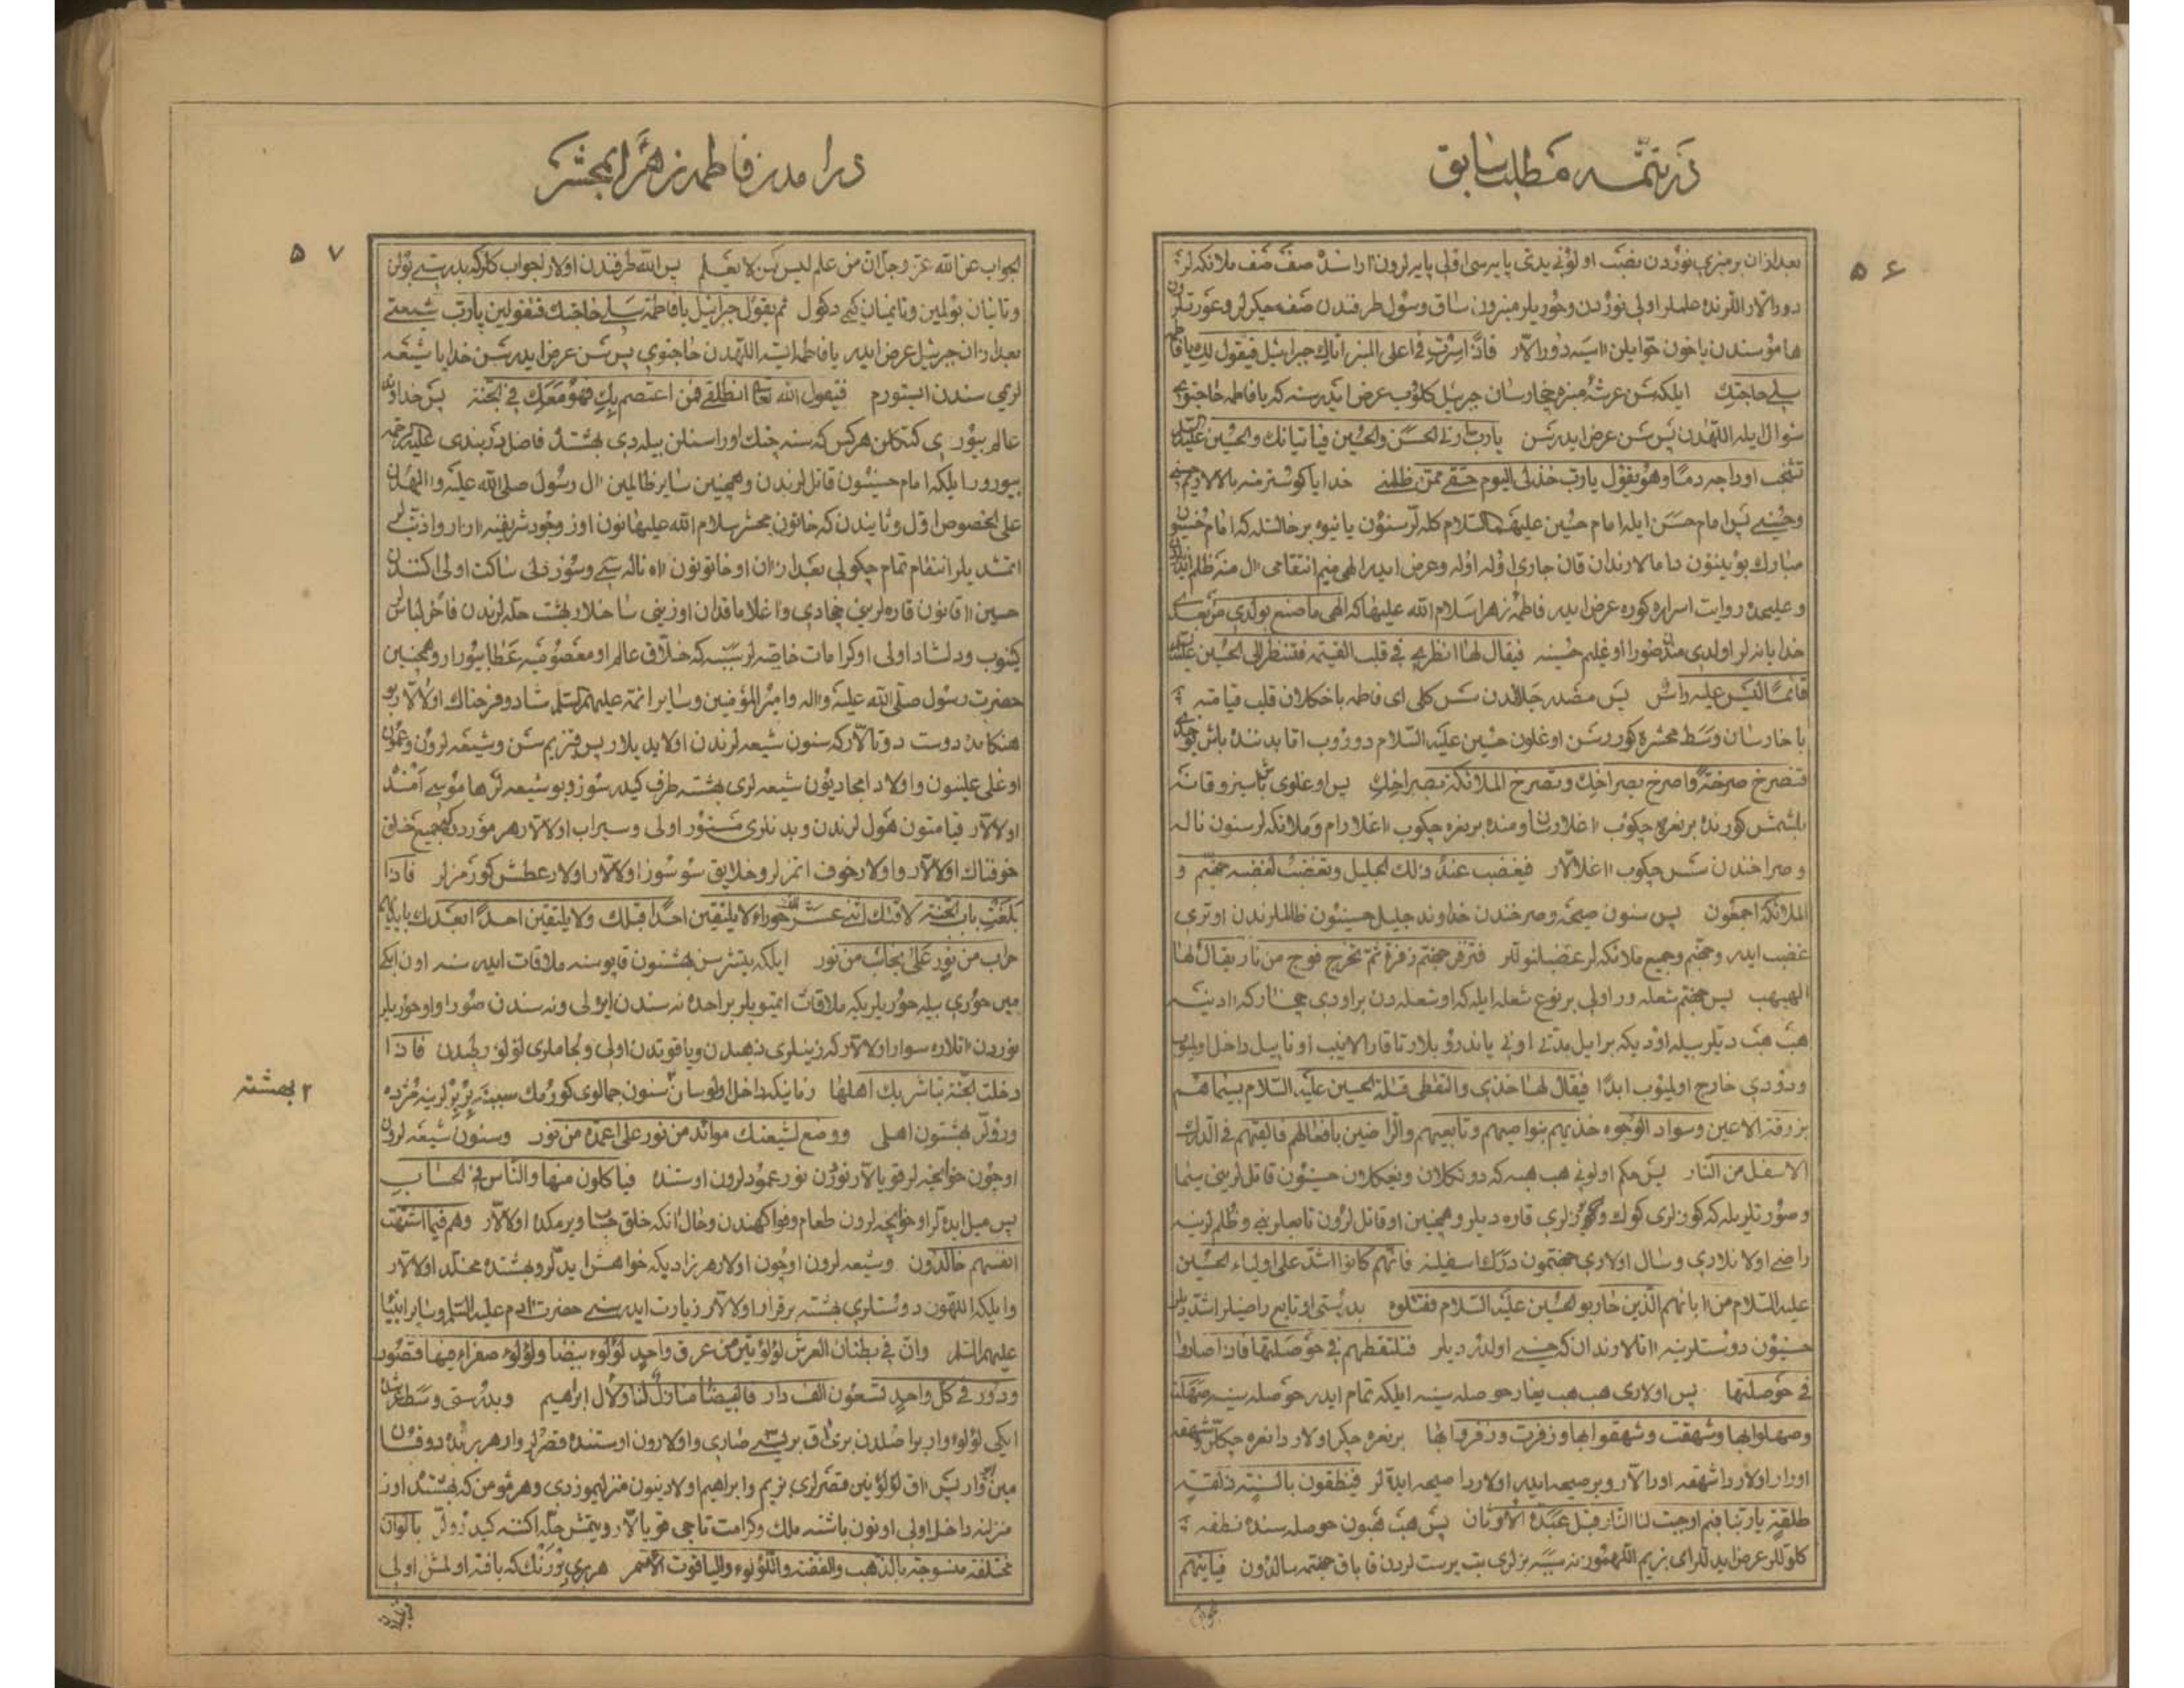 در تتمه مطلب سابق
۵۶
بعد ازان بر منبری نوردن نصب اولونی یدی پایه سی اولی پایه لرون اراسنده صف صف ملائکه لر
دورالار اللرنده علملر اولی نوردن وحوریلر منبرون ساق وسول طرفندن صف چکرلر وعورتلرون
هاموسندن یاخون حوایلن اسیه دورالار فاذا صرت فی اعلی المنبر اتاك جبرائیل فیقول لك یا فاطمه
سلی حاجتك ایلکه سن عرشه منبره چخارسان جبرئیل کلوب عرض ایدر سنه که یا فاطمه حاجتوی
سوال ایله اللهدن پس سن عرض ایدرسن یارب ارنی الحسن والحسین فیاتیانك والحسین علیه السلام
تشخب اوداجه دما وهو یقول یارب خذ لی الیوم حقی ممن ظلمنی خدایا کوستر منه بالالاریم
وحسینی پس امام حسن ایله امام حسین علیهما السلام کله لر سنون یانیوه بر حالتله که امام حسینون
مبارك بوینینون دامالارندان قان جاری اوله اوله وعرض ایدر الهی منیم انتقامی ال منه ظلم ایدندن
وعلیحده روایت اسراره کوره عرض ایدر فاطمه زهرا سلام الله علیها که الهی ما صنع بولدی من بعدی
خدایا نه لر اولدی مندن صورا اوغلیم حسینه فیقال لها انظری فی قلب القیمة فتنظر الی الحسین علیه السلام
قائما لیس علیه راس پس مصدر جلالدن سس کلی ای فاطمه باخکلان قلب قیامته
باخارسان وسط محشره کوررسن اوغلون حسین علیه السلام دوروب اما بدننده باش یوخدی
فتصرخ صرخة واصرخ بصراخك وتصرخ الملائکة بصراخك پس اوغلوی باشسز وقانه
بلشمش کورنده بر نعره چکوب اغلارسان ومنده بر نعره چکوب اغلارام وملائکه لر سنون ناله
وصراخندن سس چکوب اغلالار فیغضب عند ذلك الجلیل وتغضب لغضبه جهنم و
الملائکة اجمعون پس سنون صیحه وصرخندن خداوند جلیل حسینون ظالملرندن اوتری
غضب ایدر وجهنم وجمیع ملائکه لر غضبلنوللر فتزفر جهنم زفرة ثم تخرج فوج من نار یقال لها
الهبهب پس جهنم شعله ور اولی بر نوع شعله ایله که او شعله دن بر اودی چخار که ادینه
هب هب دیللر بیله اود یکه بر ایل یدتی اونی یاندروبلار تا قارالانیب اونا ییل داخل اولمیوب
ودودی خارج اولمیوب ابدا فیقال لها خذی والتقطی قتلة الحسین علیه السلام بسیماهم
بزرقة الاعین وسواد الوجوه خذیهم بنواصیهم وتابعیهم والراضین بافعالهم فالقیهم فی الدرك
الاسفل من النار پس حکم اولونی هب هبه که دوتکلان ویغکلان حسینون قاتللرینی سیما
وصورتلریله که کوزلری کوك ویوزلری قاره دیلر وهمچنین او قاتللرون تابعلرینی وظلملرینه
راضی اولانلاری وسال اولاری جهنمون درك اسفلینه فانهم کانوا اشد علی اولیاء الحسین
علیه السلام من ابائهم الذین حاربو الحسین علیه السلام فقتلوه بدرستی او تابع راضیلر اشدیدیلر
حسینون دوستلرینه اتالارندان که حسینی اولدردیلر فتلتقطهم فی حوصلتها فاذا صاروا
فی حوصلتها پس اولاری هب هب یغار حوصله سینه ایلکه تمام ایدر حوصله سینه صهلت
وصهلوا بها وشهقت وشهقوا بها وزفرت وزفروا بها بر نعره چکر اولاردا نعره چکللر وشهقه
اورار اولاردا شهقه اورالار وبر صیحه ایدر اولاردا صیحه ایدللر فینطقون بالسنة ذلقة
طلقة یا ربنا فیم اوجبت لنا النار قبل عبدة الاوثان پس هب هبون حوصله سنده نطقه
کلوللر عرض ایدللر ای بزیم اللهمون نه سببه بزلری بت پرست لردن قاباق جهنمه سالدون فیاتیهم
در امدن فاطمه زهرا بمحشر
۵۷
الجواب عن الله عز وجل ان من علم لیس کمن لا یعلم پس الله طرفندن اولار الجواب کلر که بدرستی بولن
وتانیان بولمین وتانمیان کیمی دکول ثم یقول جبرائیل یا فاطمة سلی حاجتك فتقولین یارب شیعتی
بعد ازان جبرئیل عرض ایدر یا فاطمه ایسته اللهدن حاجتوی پس سن عرض ایدرسن خدایا شیعه
لریمی سندن ایستورم فیقول الله تعالی انطلقی فمن اعتصم بك فهو معك فی الجنة پس خداوند
عالم بیوردی کتکلن هر کس که سنه چنك اوراسنلن بیله دی بهشتده فاضل دربندی علیه الرحمه
بیورور ایلکه امام حسینون قاتللرندن وهمچنین سایر ظالمین ال رسول صلی الله علیه والهدن
علی الخصوص اول وثانیدن که خاتون محشر سلام الله علیهانون اوز وجود شریفینه ازار واذیت
اتمشدیلر انتقام تمام چکولی بعد ازان او خاتونون اه ناله سی وسوز دلی ساکت اولی اکننده
حسین اقانون قاره لرینی چخادی واغلاماقدان اوزینی ساخلار بهشت حله لرندن فاخر لباس
کینوب ودلشاد اولی او کرامات خاصه لر سببیه که خلاق عالم او معصومیه عطا بیورار وهمچنین
حضرت رسول صلی الله علیه واله وامیر المؤمنین وسایر ائمه علیهم السلام شاد وفرحناك اولالار بو
هنکامده دوست دوتالار که سنون شیعه لرندن اولایدیلار پس قزیم سن وشیعه لرون وعمون
اوغلی علینون واولاد امجادیون شیعه لری بهشته طرف کیدرسوز وبو شیعه لر هاموسی امنده
اولالار قیامتون هول لرندن وبدنلری مستور اولی وسیراب اولالار هر موردده که جمیع خلق
خوفناك اولالار واولار خوف اتمزلر وخلایق سو سوز اولالار اولار عطش کورمزلر فاذا
بلغت باب الجنة لاقتك اثنی عشر الف حوراء لا یلتقین احدا قبلك ولا یلتقین احدا بعدك بایدیهم
حراب من نور علی نجائب من نور ایلکه یتشرسن بهشتون قاپوسنه ملاقات ایدر سنه اون ایکی
مین حوری بیله حوریلر یکه ملاقات ایتمیوبلر بر احده نه سندن ایره لی ونه سندن صورا او حوریلر
نوردن اتلاره سوار اولالار که زینلری ذهبدن ویاقوتدن اولی ولجاملری لؤلؤ رطبدن فاذا
دخلت الجنة تباشر بك اهلها زمانیکه داخل اولوسان ۲ سنون جمالوی کورمك سببینه بربرلرینه مژده
۲ بهشته
وروللر بهشتون اهلی ووضع لشیعتك موائد من نور علی اعمدة من نور وسنون شیعه لرون
اوچون خوانچه لر قویالار نوردن نور عمودلرون اوستنده فیاکلون منها والناس فی الحساب
پس میل ایدللر او خوانچه لرون طعام وفواکهندن وحال انکه خلق حساب ویرمکده اولالار وهم فیما اشتهت
انفسهم خالدون وشیعه لرون اوچون اولار هر زادیکه خواهش ایدللر وبهشتده مخلد اولالار
وایلکه اللهون دوستلری بهشته برقرار اولالار زیارت ایدر سنی حضرت ادم علیه السلام وسایر انبیا
علیهم السلام وان فی بطنان العرش لؤلؤتین من عرق واحد لؤلؤة بیضا ولؤلؤة صفراء فیها قصور
ودور فی کل واحد سبعون الف دار فالبیضا منازل لنا ولال ابراهیم وبدرستی وسط عرشده
ایکی لؤلؤ وار بر اصلدن بری اق بریسی صاری واولارون اوستنده قصرلر وار هر برنده دوقسان
مین وار پس اق لؤلؤنین قصرلری بزیم وابراهیم اولادینون منزلیموزدی وهر مؤمن که بهشتده اوز
منزلنه داخل اولی اونون باشنه ملك وکرامت تاجی قویالار ویتمش حله اکننه کیدروللر بالوان
مختلفة منسوجة بالذهب والفضة واللؤلؤ والیاقوت الاحمر هر بری بر رنك که بافته اولمش اولی